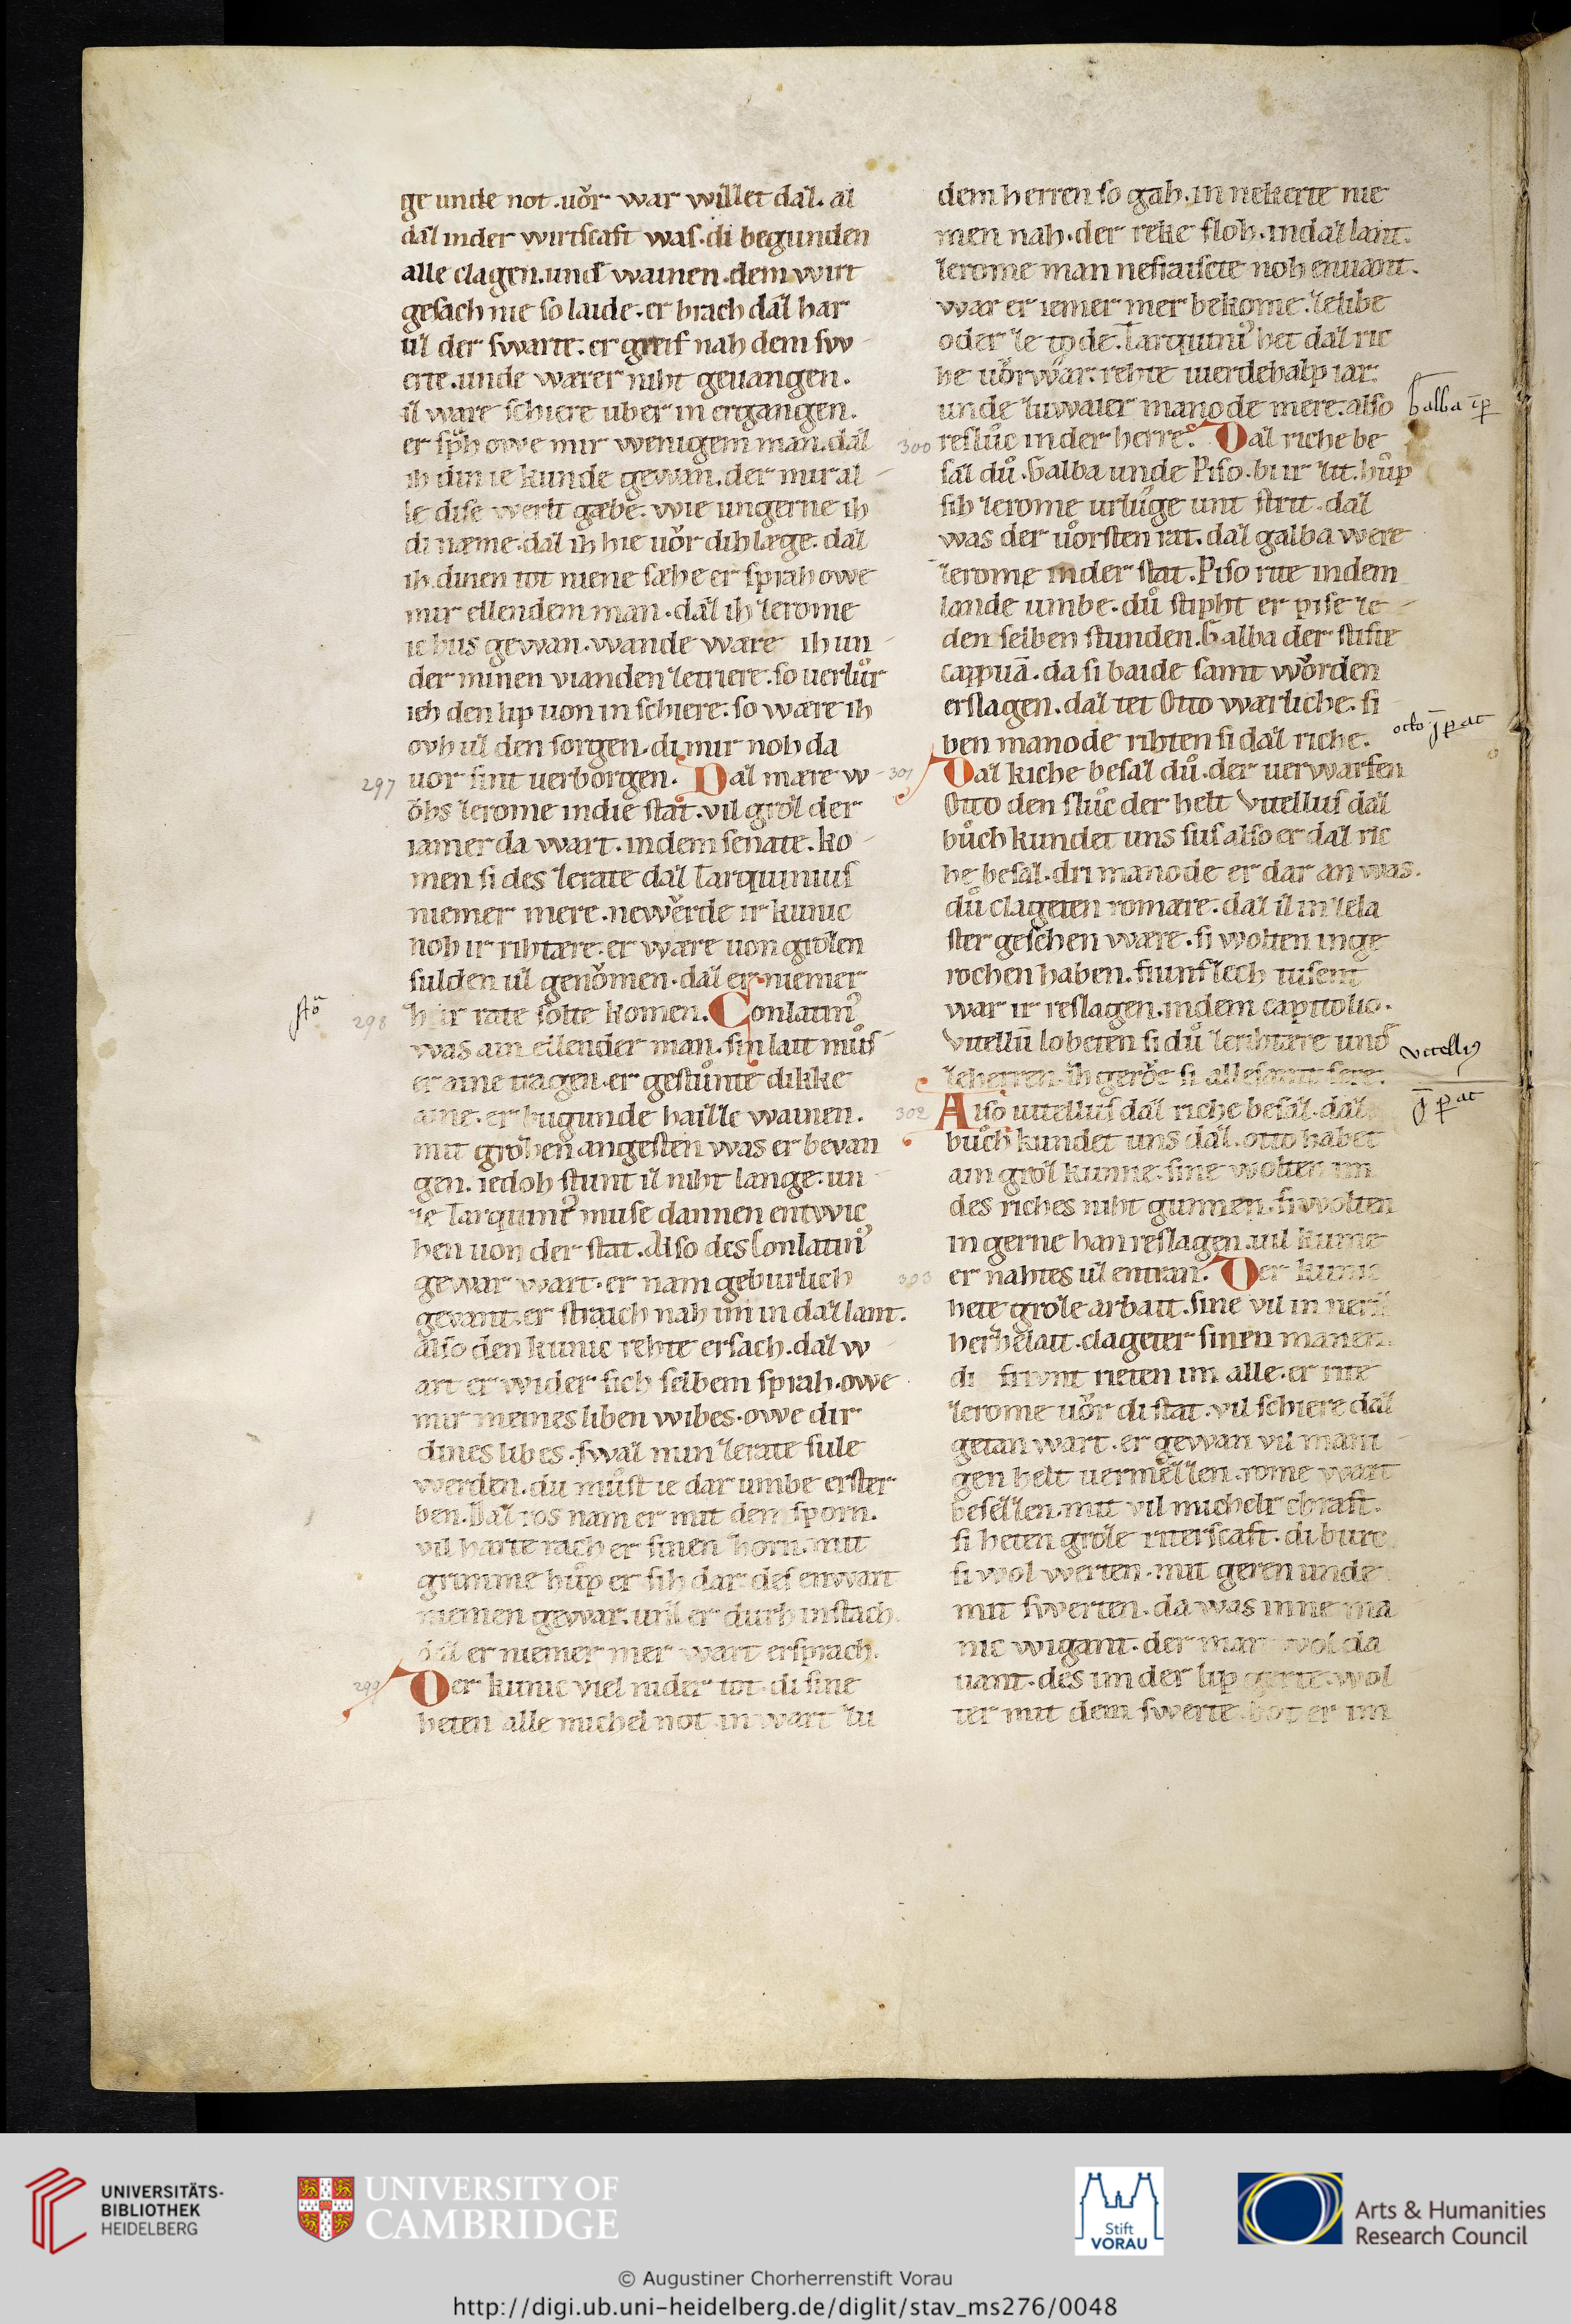 ge unde not. uͦor war willet daz. al
daz in der wirtscaft was. di begunden
alle clagen. und wainen. dem wirt
gesach nie so laide. er brach daz har
uz der swarte. er greif nah dem sw
erte. unde wærer niht geuangen.
iz ware schiere uber in ergangen.
er sp̄h owe mir wenigem man. daz
ih din ie kunde gewan. der mir al
le dise werlt gæbe. wie ungerne ih
di næme. daz ih hie uͦor dih læge. daz
ih dinen tot niene sæhe er sprah owe
mir ellendem man. daz ih zerome
ie hus gewan. wande ware ih un
der minen vianden zetriere. so uerlur
ich den lip uon in schiere. so wære ih
ovh uz den sorgen. di mir noh da
297 uor sint uerborgen. Daz mære w
ohs zerome in die stat. vil groz der
iamer da wart. in dem senate. ko
men si des zerate daz Tarquinius
niemer mere. newerde ir kunic
noh ir rihtære. er wære uon grozen
sulden uz genomen. daz er niemer
298 ir rate solte komen. Conlatin᾽
was ain ellender man. sin lait muͦs
er aine tragen. er gestuͦnte dikke
aine. er bugunde haizze wainen.
mit grozen angesten was er bevan
gen. iedoh stunt iz niht lange. un
ze Tarquini᾽ muse dannen entwic
hen uon der stat. Also des Conlatin᾽
gewar wart. er nam geburlich
gewant. er straich nah im in daz lant.
also den kunic rehte ersach. daz w
art er wider sich selbem sprah. owe
mir meines liben wibes. owe dir
dines libes. swaz min zerate sule
werden. du muͦst ie dar umbe erster
ben. Daz ros nam er mit dem sporn.
vil harte rach er sinen zorn. mit
grimme huͦp er sih dar des enwart
niemen gewar. unz er durh in stach.
daz er niemer mer wart ersprach.
299 Der kunic viel nider tot. di sine
heten alle michel not in wart zu
dem herren so gah. in nekerte nie
men nah. der reke floh. in daz lant.
zerome man nefraiscte noh enuant.
war er iemer mer bekome. zelibe
oder ze tode. Tarquini᾽ het daz ric
he uͦorwar. rehte uierdehalp iar.
unde zuwaier manode mere. also
Galba īp
300 reslu͛c in der herre. Daz riche be
saz duͦ. Galba unde Piso. bi ir zit. huͦp
sih zerome urluͦge unt strit. daz
was der uͦorsten rat. daz galba were
zerome in der stat. Piso rite in dem
lande umbe. duͦ stipht er pise ze
den selben stunden. Galba der stifte
cappuā. da si baide samt worden
erslagen. daz tet Otto wærliche. si
ben manode rihten si daz riche.
301 Daz Riche besaz duͦ. der uerwarfen
Otto den sluͦc der helt Vitellius daz
buͦch kundet uns sus also er daz ric
he besaz. dri manode er dar an was.
duͦ clageten romære. daz iz in zela
ster geschen wære. si wolten in ge
rochen haben. fiunfzech tusent
war ir reslagen. in dem capitolio.
Vitelliū lobeten si duͦ zerihtære und
Vitelli᾽
zeherren. ih gerde si allesamt sere.
302 Also uitellius daz riche besaz. daz
buͦch kundet uns daz. otto habet
ain groz kunne. sine wolten im
des riches niht gunnen. si wolten
in gerne han reslagen. uil kume
303 er nahtes uz entran. Der kunic
hete groze arbait. sine vil in nerz
herzelait. clageter sinen manen.
di friwnt rieten im alle. er rite
zerome uͦor di stat. vil schiere daz
getan wart. er gewan vil mani
gen helt uermezzen. rome wart
besezzen. mit vil micheler chraft.
si heten groze riterscaft. di burc
si wol werten. mit geren unde
mit swerten. da was inne ma
nic wigant. der man wol da
uant. des im der lip gerte. wol
ter mit dem swerte. bot er im
UNIVERSITÄTS-
BIBLIOTHEK
HEIDELBERG
UNIVERSITY OF
CAMBRIDGE
Stift
VORAU
Arts & Humanities
Research Council
© Augustiner Chorherrenstift Vorau
http://digi.ub.uni-heidelberg.de/diglit/stav_ms276/0048